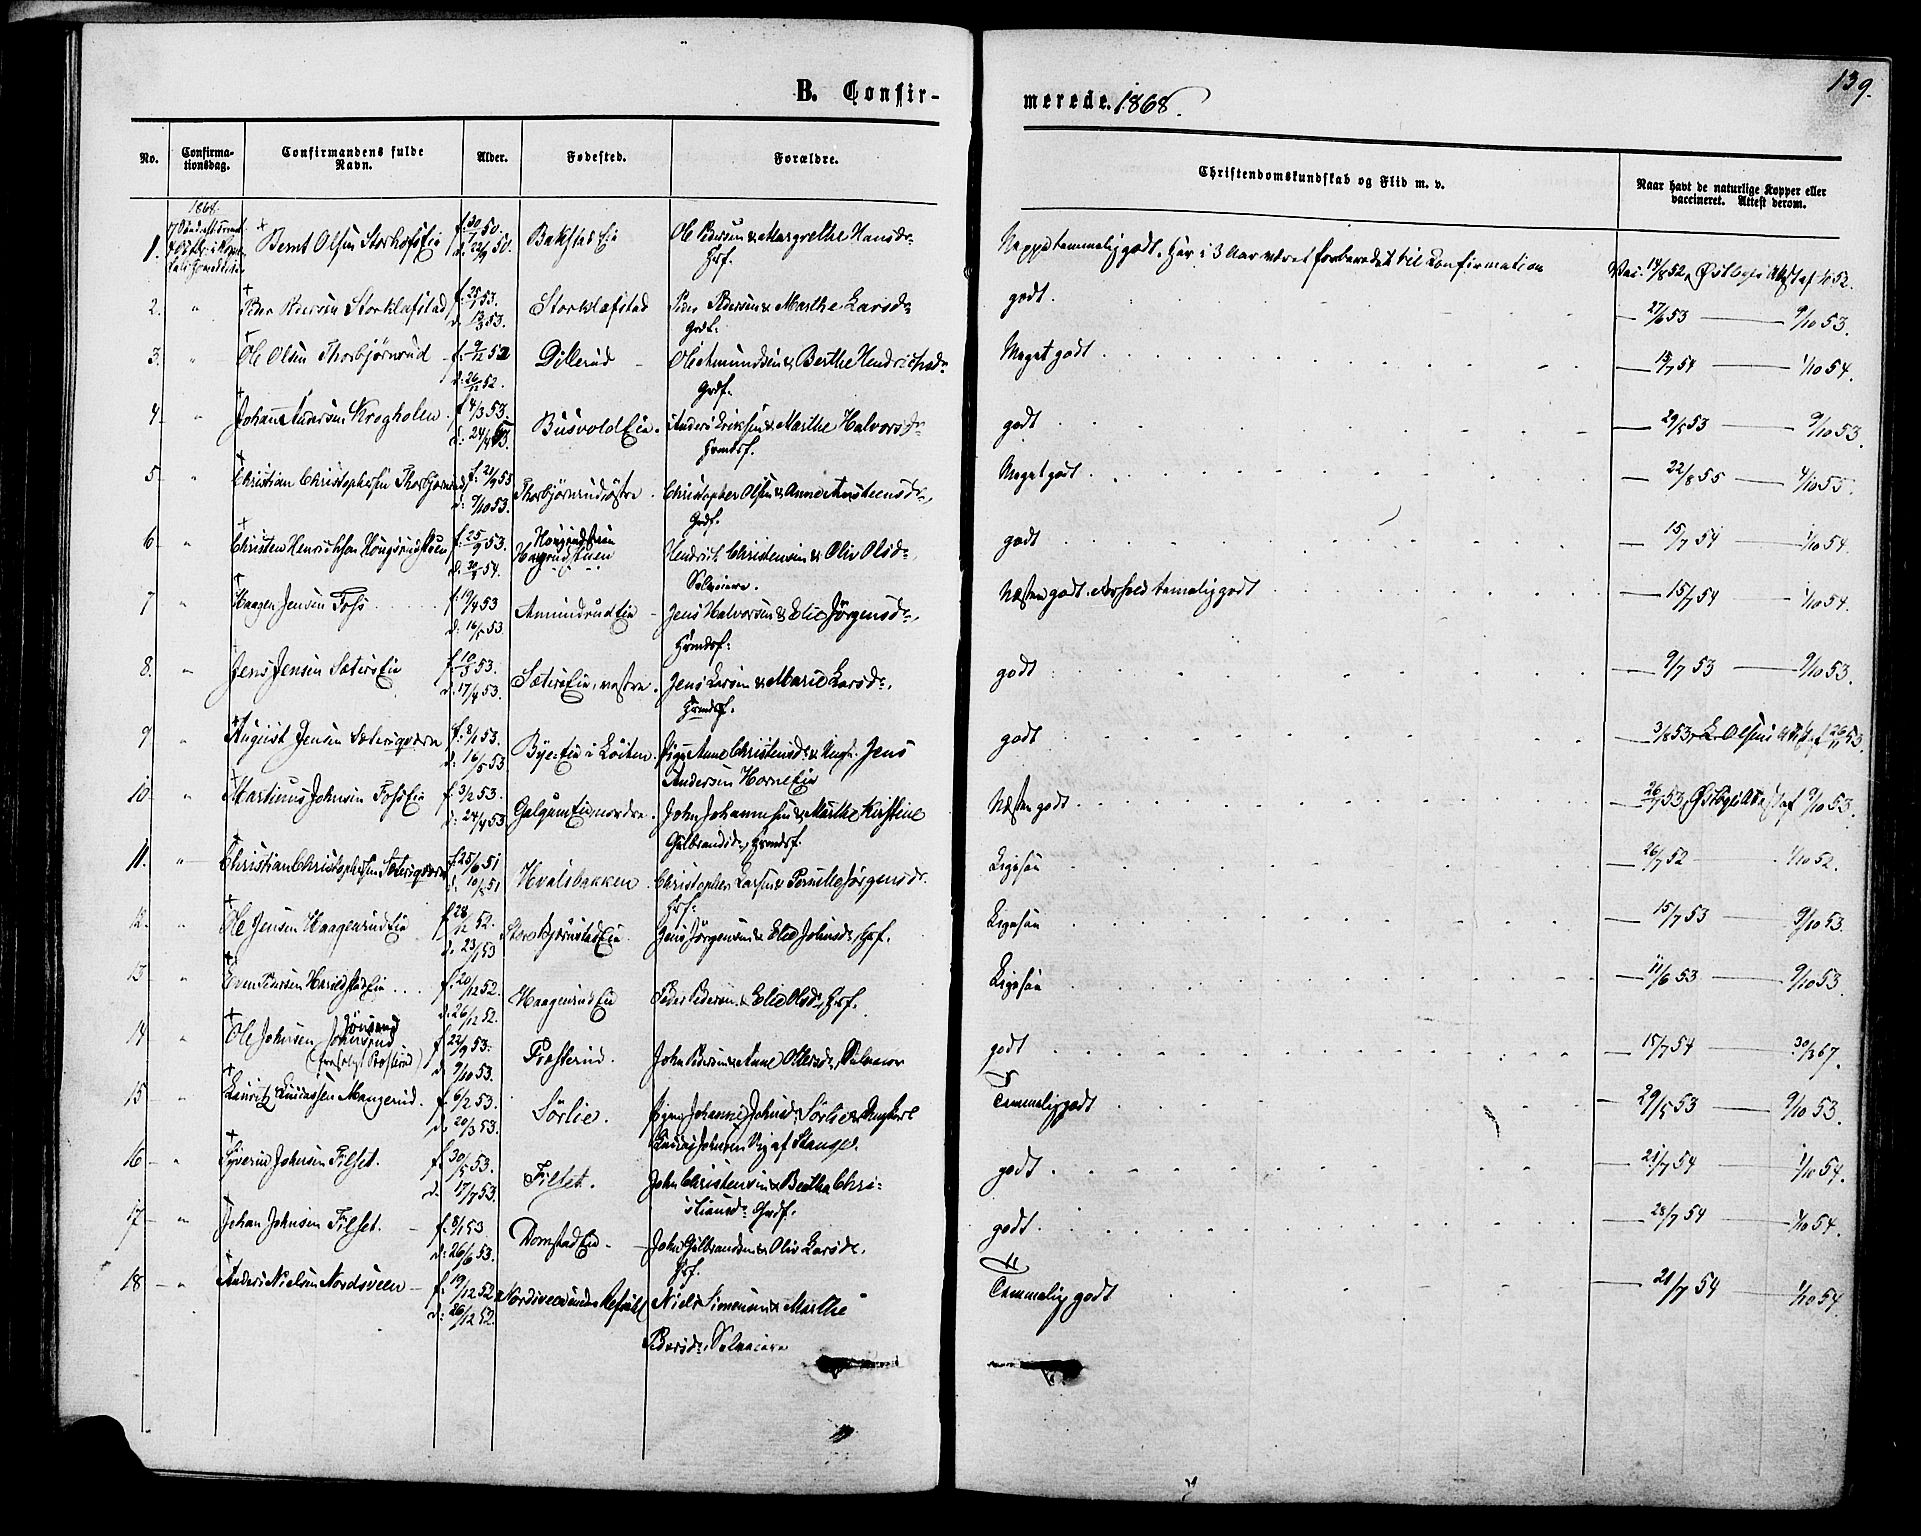 B. Confir-
merede. 1868.
139.
No.
Confirma-
tionsdag.
Confirmandens fulde
Navn.
Alder.
Fødested.
Forældre.
Christendomskundskab og Flid m. v.
Naar havt de naturlige Kopper eller
vaccineret. Attest derom.
1868
1. Bernt Olsen StorhofsEie f. 30/ 50. d. 12/9 50. Ole Pedersen & Margrethe Hansdr.
Hrf.
Neppe temmelig godt. Har i 3 Aar været forberedet til Confirmation
Vac. 14/8 52, Østbyes Attest af 52.
2. " Peder Pedersen Storklafstad f. 25/ 53. d. 13/3 53. Storklafstad Peder Pedersen & Marthe Larsdr.
Grdf.
godt. 27/6 53 — 9/10 53.
3. " Ole Olsen Thorbjørnrud f. 9/12 52 d. 26/12 52. Dillerud Ole Amundsen & Berthe Hendrichsdr.
Grdf.
Meget godt 15/7 54 1/10 54.
4. " Johan Andersen Krogholen f. 4/3 53. d. 24/4 53. BusvoldEie. Anders Eriksen & Marthe Halvorsdr.
Hrmdsf.
godt 29/5 53 — 9/10 53.
5 " Christian Christophersen Thorbjørnrud f. 21/9 53 d. 9/10 53. Thorbjørnrud østre Christopher Olsen & Anne Amsteensdr.
Grdf.
Meget godt 22/8 55 — 4/10 55.
6 " Christen Henrichsen Hougsrudstuen f. 25/9 53. d. 54. Hougrudstuen Hendrich Christensen & Oliv Olsdr.
Selveiere.
godt 15/7 54 1/10 54.
7 " Haagen Jensen Foss f. 19/4 53 d. 16/5 53. AmundrudEie Jens Halvorsen & Elie Jørgensdr.
Hrmdsf:
Næsten godt. temmelig godt 15/7 54 1/10 54.
8. " Jens Jensen SætersEie f. 10/3 53. d. 17/4 53. SætersEie, vestre. Jens Larsen & Marie Larsdr.
Hrmdsf.
godt 9/7 53 — 9/10 53.
9 " August Jensen Sætersqværn f. 8/1 53. d. 16/5 53 ByeEie i Løiten. Pige Anne Christensdr. & Ungk. Jens
Andersen HorneEie
godt 3/8 53, L. Olsens Attest af 26/11 53.
10 " Martinus Johnsen FossEie f. 3/2 53. d. 24/4 53 GalgumEie, nordre. John Johannesen & Marthe Kirstine
Gulbrandsdr., Hrmdsf.
Næsten godt 26/7 53, Østbyes Attest af 9/10 53.
11. " Christian Christophersen Sætersqværn f. 25/6 51 d. 10/ 51 Hvalsbakken Christopher Larsen & Pernille Jørgensdr.
Hrf.
Ligesaa 26/7 52 1/10 52.
12. " Ole Jensen HaagenrudEie f. 28/12 52. d. 23/1 53 Jens Jørgensen & Elie Johnsdr., Hrf.
Ligesaa 15/7 53 — 9/10 53.
13 " Even Pedersen f. 20/12 52. d. 26/12 52. HaagenrudEie Peder Pedersen & Elie Olsdr., Hrf.
Ligesaa 11/6 53 — 9/10 53.
14 " Ole Johnsen Jønsrud f. 22/9 53. d. 9/10 53. Præsterud. John Pedersen & Anne Olsdr., Selveier
godt 15/7 54 30/3 67.
15 " Lauritz Lauritssen Mangerud. f. 6/2 53. d. 20/3 53. Sørlie. Pigen Johanne Johnsdr. Sørlie & Ungkarl
Johnsen af Stange.
Temmelig godt 29/5 53 9/10 53.
16 " Syverin Johnsen Filset. f. 30/5 53. d. 17/7 53. Filset. John Christensen & Bertha Chri-
stiansdr. Grdf.
godt 21/7 54 1/10 54.
17 " Johan Johnsen Filset. f. 8/1 53 d. 26/6 53. DomstadEie John Gulbrandsen & Oliv Larsdr.
Hrf.
godt. 28/7 54 1/10 54.
18 " Anders Nielsen Nordsveen f. 19/12 52 d. 26/12 52. Nordsveen under Niels Simensen & Marthe
Pedersdr., Selveiere
Temmelig godt 21/7 54 1/10 54